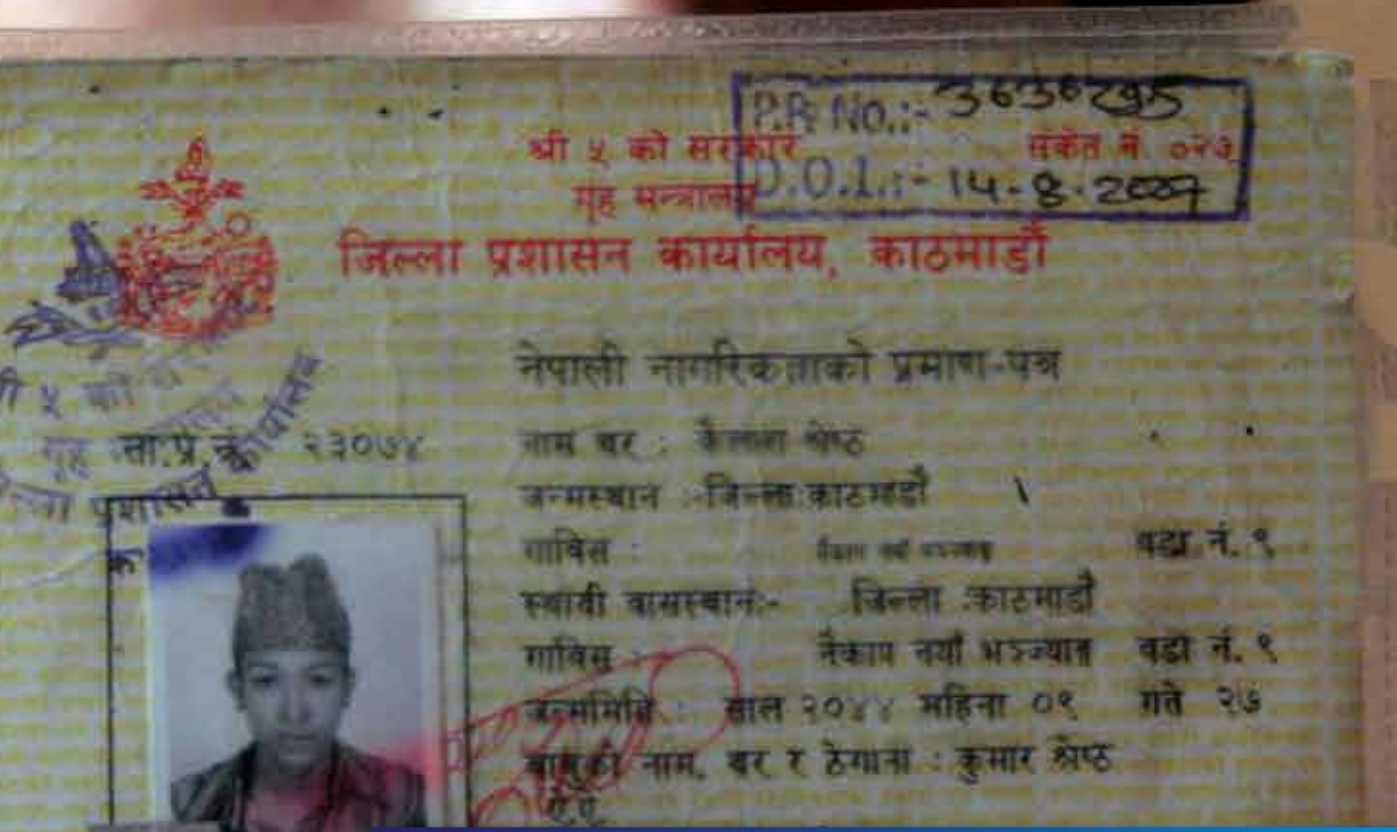 P.P. No.:- 3636295
श्री ५ को सरकार
संकेत नं. ०२७
गृह मन्त्रालय
D.O.I.:- 14-8-2007
जिल्ला प्रशासन कार्यालय, काठमाडौं
नेपाली नागरिकताको प्रमाण-पत्र
ना.प्र.नं. २३०७४
नाम थर : श्रेष्ठ
जन्मस्थान :-जिल्ला:काठमाडौं
गाविस : वडा नं. ९
स्थायी वासस्थान:- जिल्ला :काठमाडौं
गाविस :- नैकाप नयाँ भञ्ज्याङ वडा नं. ९
जन्ममिति : साल २०४४ महिना ०९ गते २७
बाबुको नाम, थर र ठेगाना : कुमार श्रेष्ठ
ऐ.ऐ.